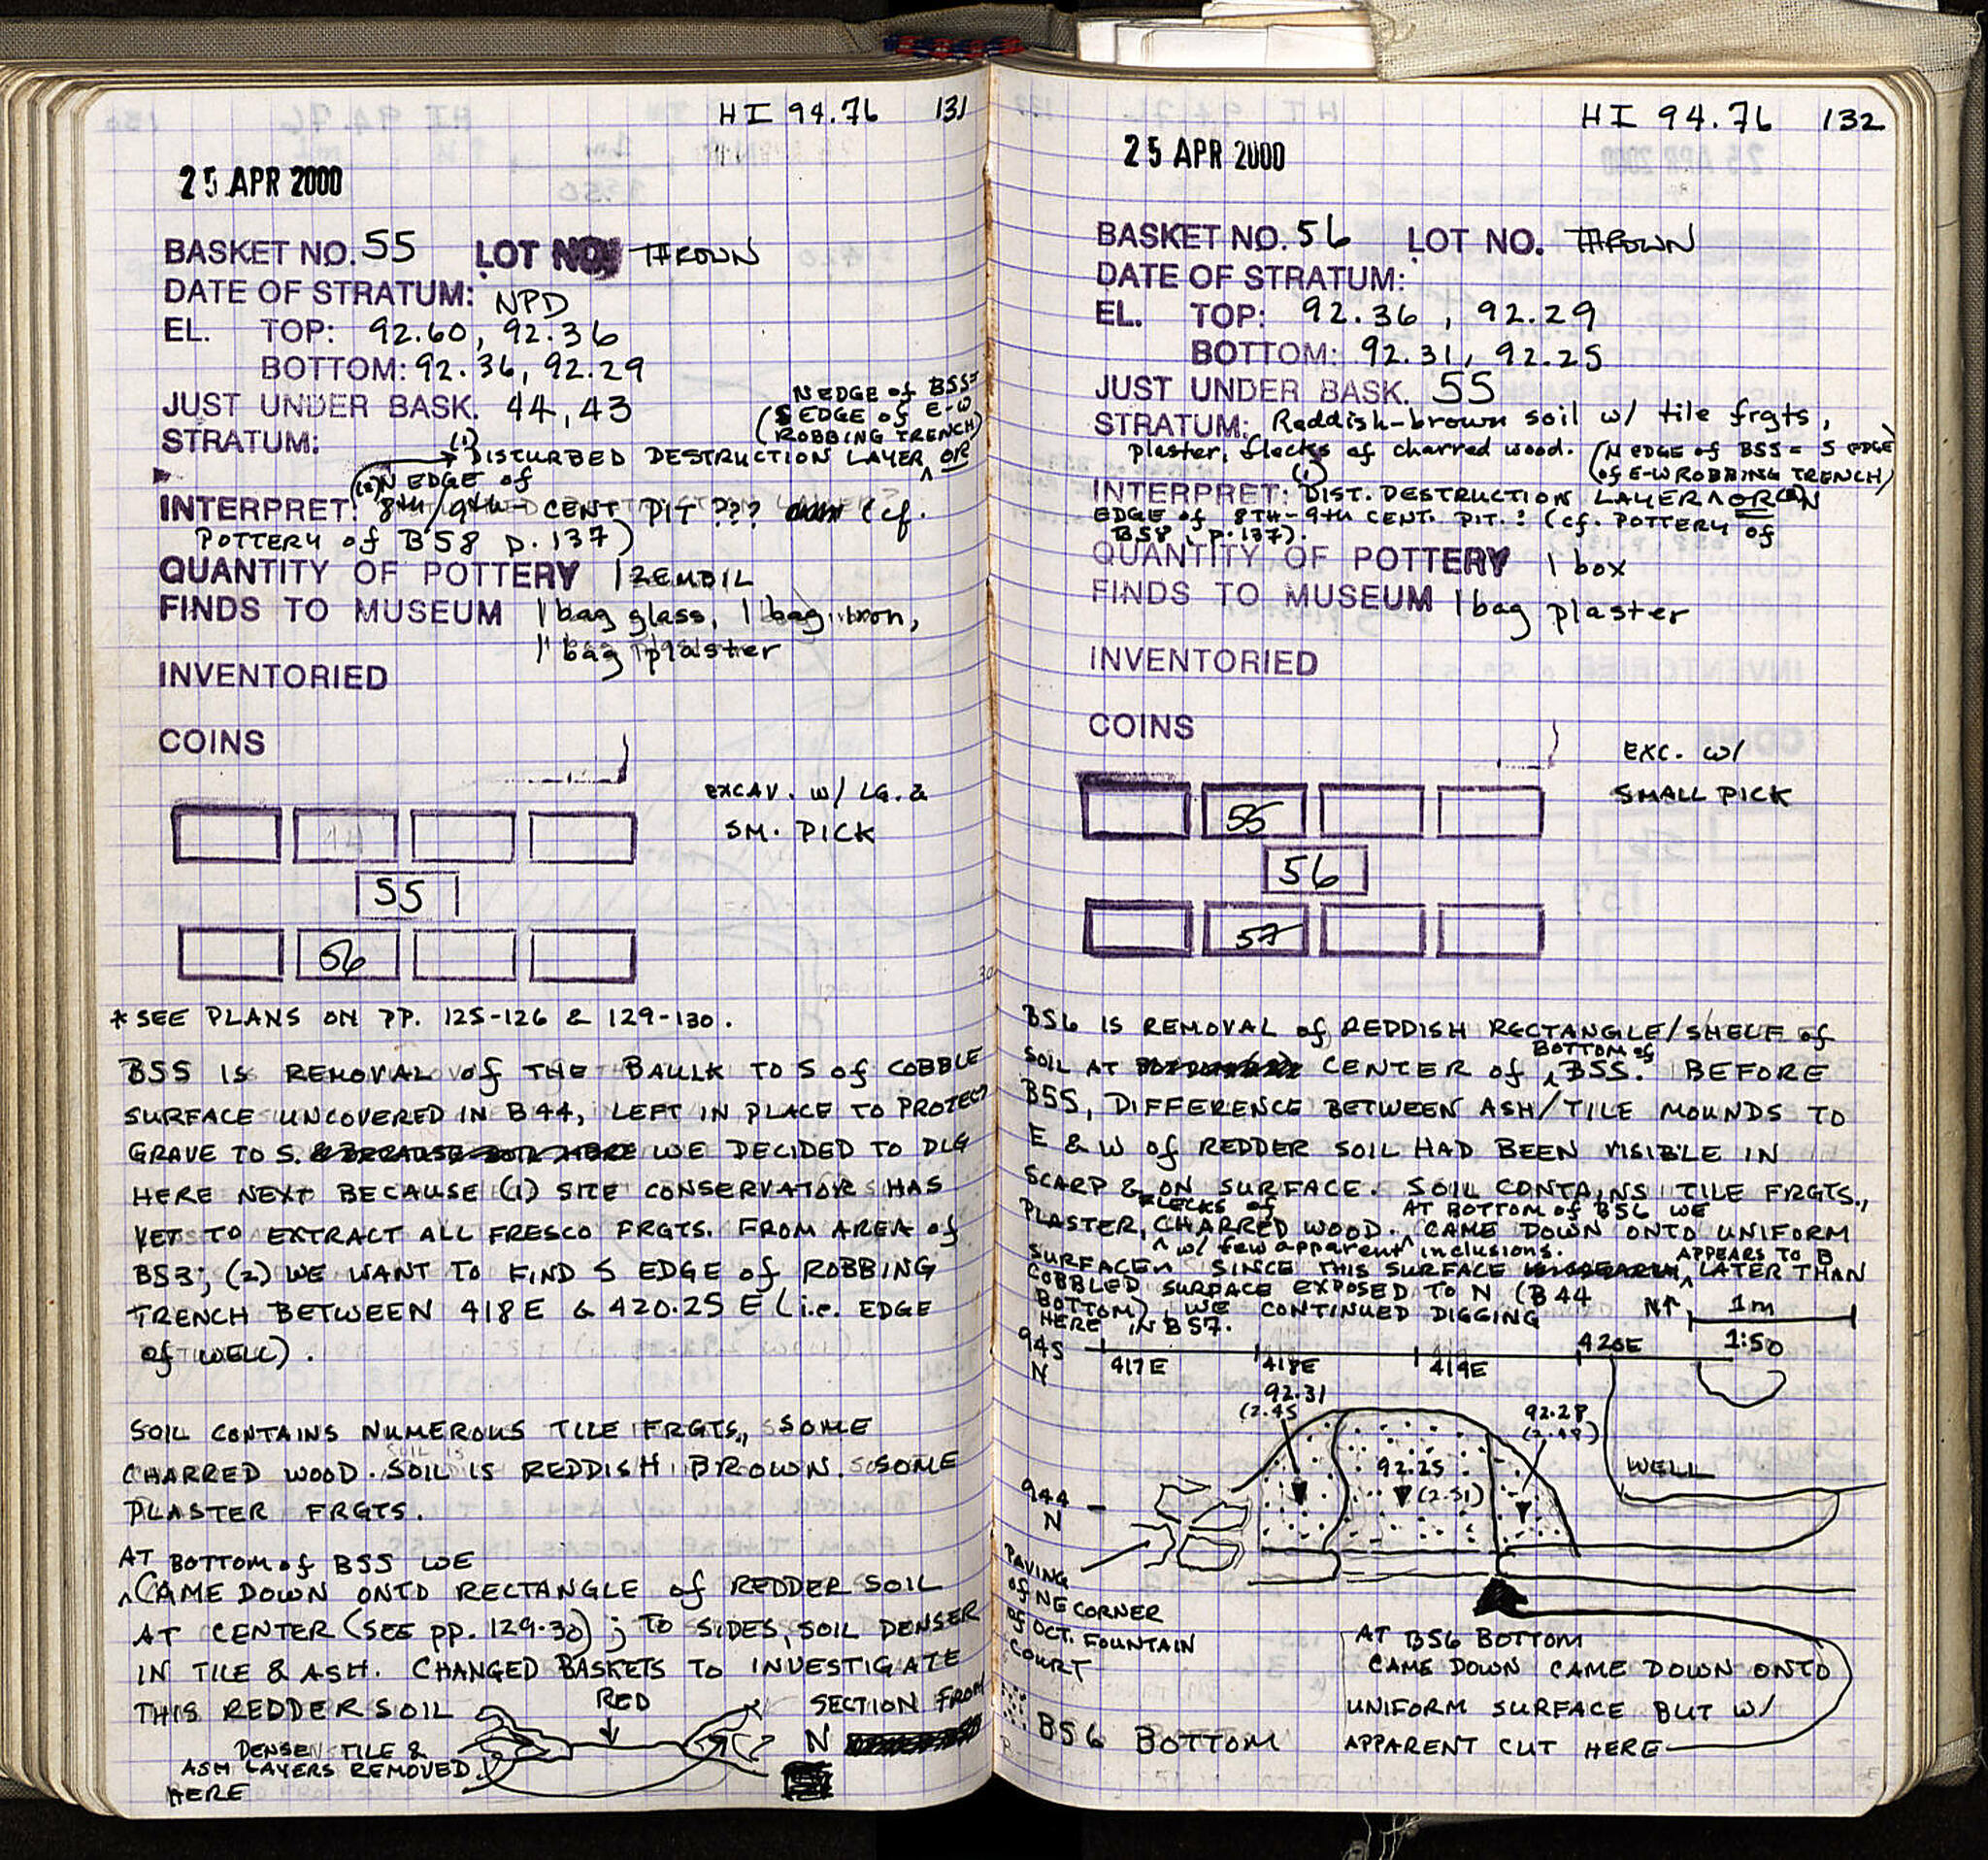 HI 94.76 131
25 APR 2000
BASKET NO. 55 LOT NO. THROWN
DATE OF STRATUM: NPD
EL. TOP: 92.60, 92.36
BOTTOM: 92.36, 92.29
JUST UNDER BASK. 44, 43
N EDGE of B55=
(S EDGE of E-W
ROBBING TRENCH)
STRATUM: (1) DISTURBED DESTRUCTION LAYER ^ OR
(2) N EDGE of
INTERPRET: 8th/9th- CENT PIT ??? (cf.
POTTERY of B58 p. 137)
QUANTITY OF POTTERY 1 ZEMBIL
FINDS TO MUSEUM 1 bag glass, 1 bag iron,
1 bag plaster
INVENTORIED
COINS
EXCAV. w/ LG. &
SM. PICK
44
55
56
*SEE PLANS ON PP. 125-126 & 129-130.
B55 IS REMOVAL of THE BAULK TO S of COBBLE
SURFACE UNCOVERED IN B44, LEFT IN PLACE TO PROTECT
GRAVE TO S. & BECAUSE SOIL HERE WE DECIDED TO DIG
HERE NEXT BECAUSE (1) SITE CONSERVATOR HAS
YET TO EXTRACT ALL FRESCO FRGTS. FROM AREA of
B53; (2) WE WANT TO FIND S EDGE of ROBBING
TRENCH BETWEEN 418E & 420.25 E (i.e. EDGE
of WELL).
SOIL CONTAINS NUMEROUS TILE FRGTS., SOME
CHARRED WOOD. SOIL IS REDDISH BROWN. SOME
PLASTER FRGTS.
AT BOTTOM of B55 WE
^CAME DOWN ONTO RECTANGLE of REDDER SOIL
AT CENTER (SEE pp. 129-30); TO SIDES, SOIL DENSER
IN TILE & ASH. CHANGED BASKETS TO INVESTIGATE
THIS REDDER SOIL
RED
SECTION FROM
N
DENSE TILE &
ASH LAYERS REMOVED
HERE
HI 94.76 132
25 APR 2000
BASKET NO. 56 LOT NO. THROWN
DATE OF STRATUM:
EL. TOP: 92.36, 92.29
BOTTOM: 92.31, 92.25
JUST UNDER BASK. 55
STRATUM: Reddish-brown soil w/ tile frgts,
plaster, flecks of charred wood. (N EDGE of B55= S EDGE
of E-W ROBBING TRENCH)
INTERPRET: (1) DIST. DESTRUCTION LAYER ^ OR (2) N
EDGE of 8TH-9th CENT. PIT. ? (cf. POTTERY of
B58, p. 137).
QUANTITY OF POTTERY 1 box
FINDS TO MUSEUM 1 bag plaster
INVENTORIED
COINS
EXC. w/
SMALL PICK
55
56
57
B56 IS REMOVAL of REDDISH RECTANGLE/SHELF of
SOIL AT CENTER of ^BOTTOM of B55. BEFORE
B55, DIFFERENCE BETWEEN ASH/TILE MOUNDS TO
E & W of REDDER SOIL HAD BEEN VISIBLE IN
SCARP & ON SURFACE. SOIL CONTAINS TILE FRGTS.,
PLASTER, ^FLECKS of CHARRED WOOD. ^AT BOTTOM of B56 WE CAME DOWN ONTO UNIFORM
SURFACE ^w/ few apparent inclusions. SINCE THIS SURFACE ^APPEARS TO B LATER THAN
COBBLED SURFACE EXPOSED TO N (B44
BOTTOM), WE CONTINUED DIGGING
HERE IN B57.
N↑ 1m
1:50
945 N
417E 418E 419E 420E
92.31
(2.45
92.28
(2.48)
92.25
(2.51)
WELL
944
N
PAVING
of NE CORNER
of OCT. FOUNTAIN
COURT
B56 BOTTOM
AT B56 BOTTOM
CAME DOWN CAME DOWN ONTO
UNIFORM SURFACE BUT W/
APPARENT CUT HERE